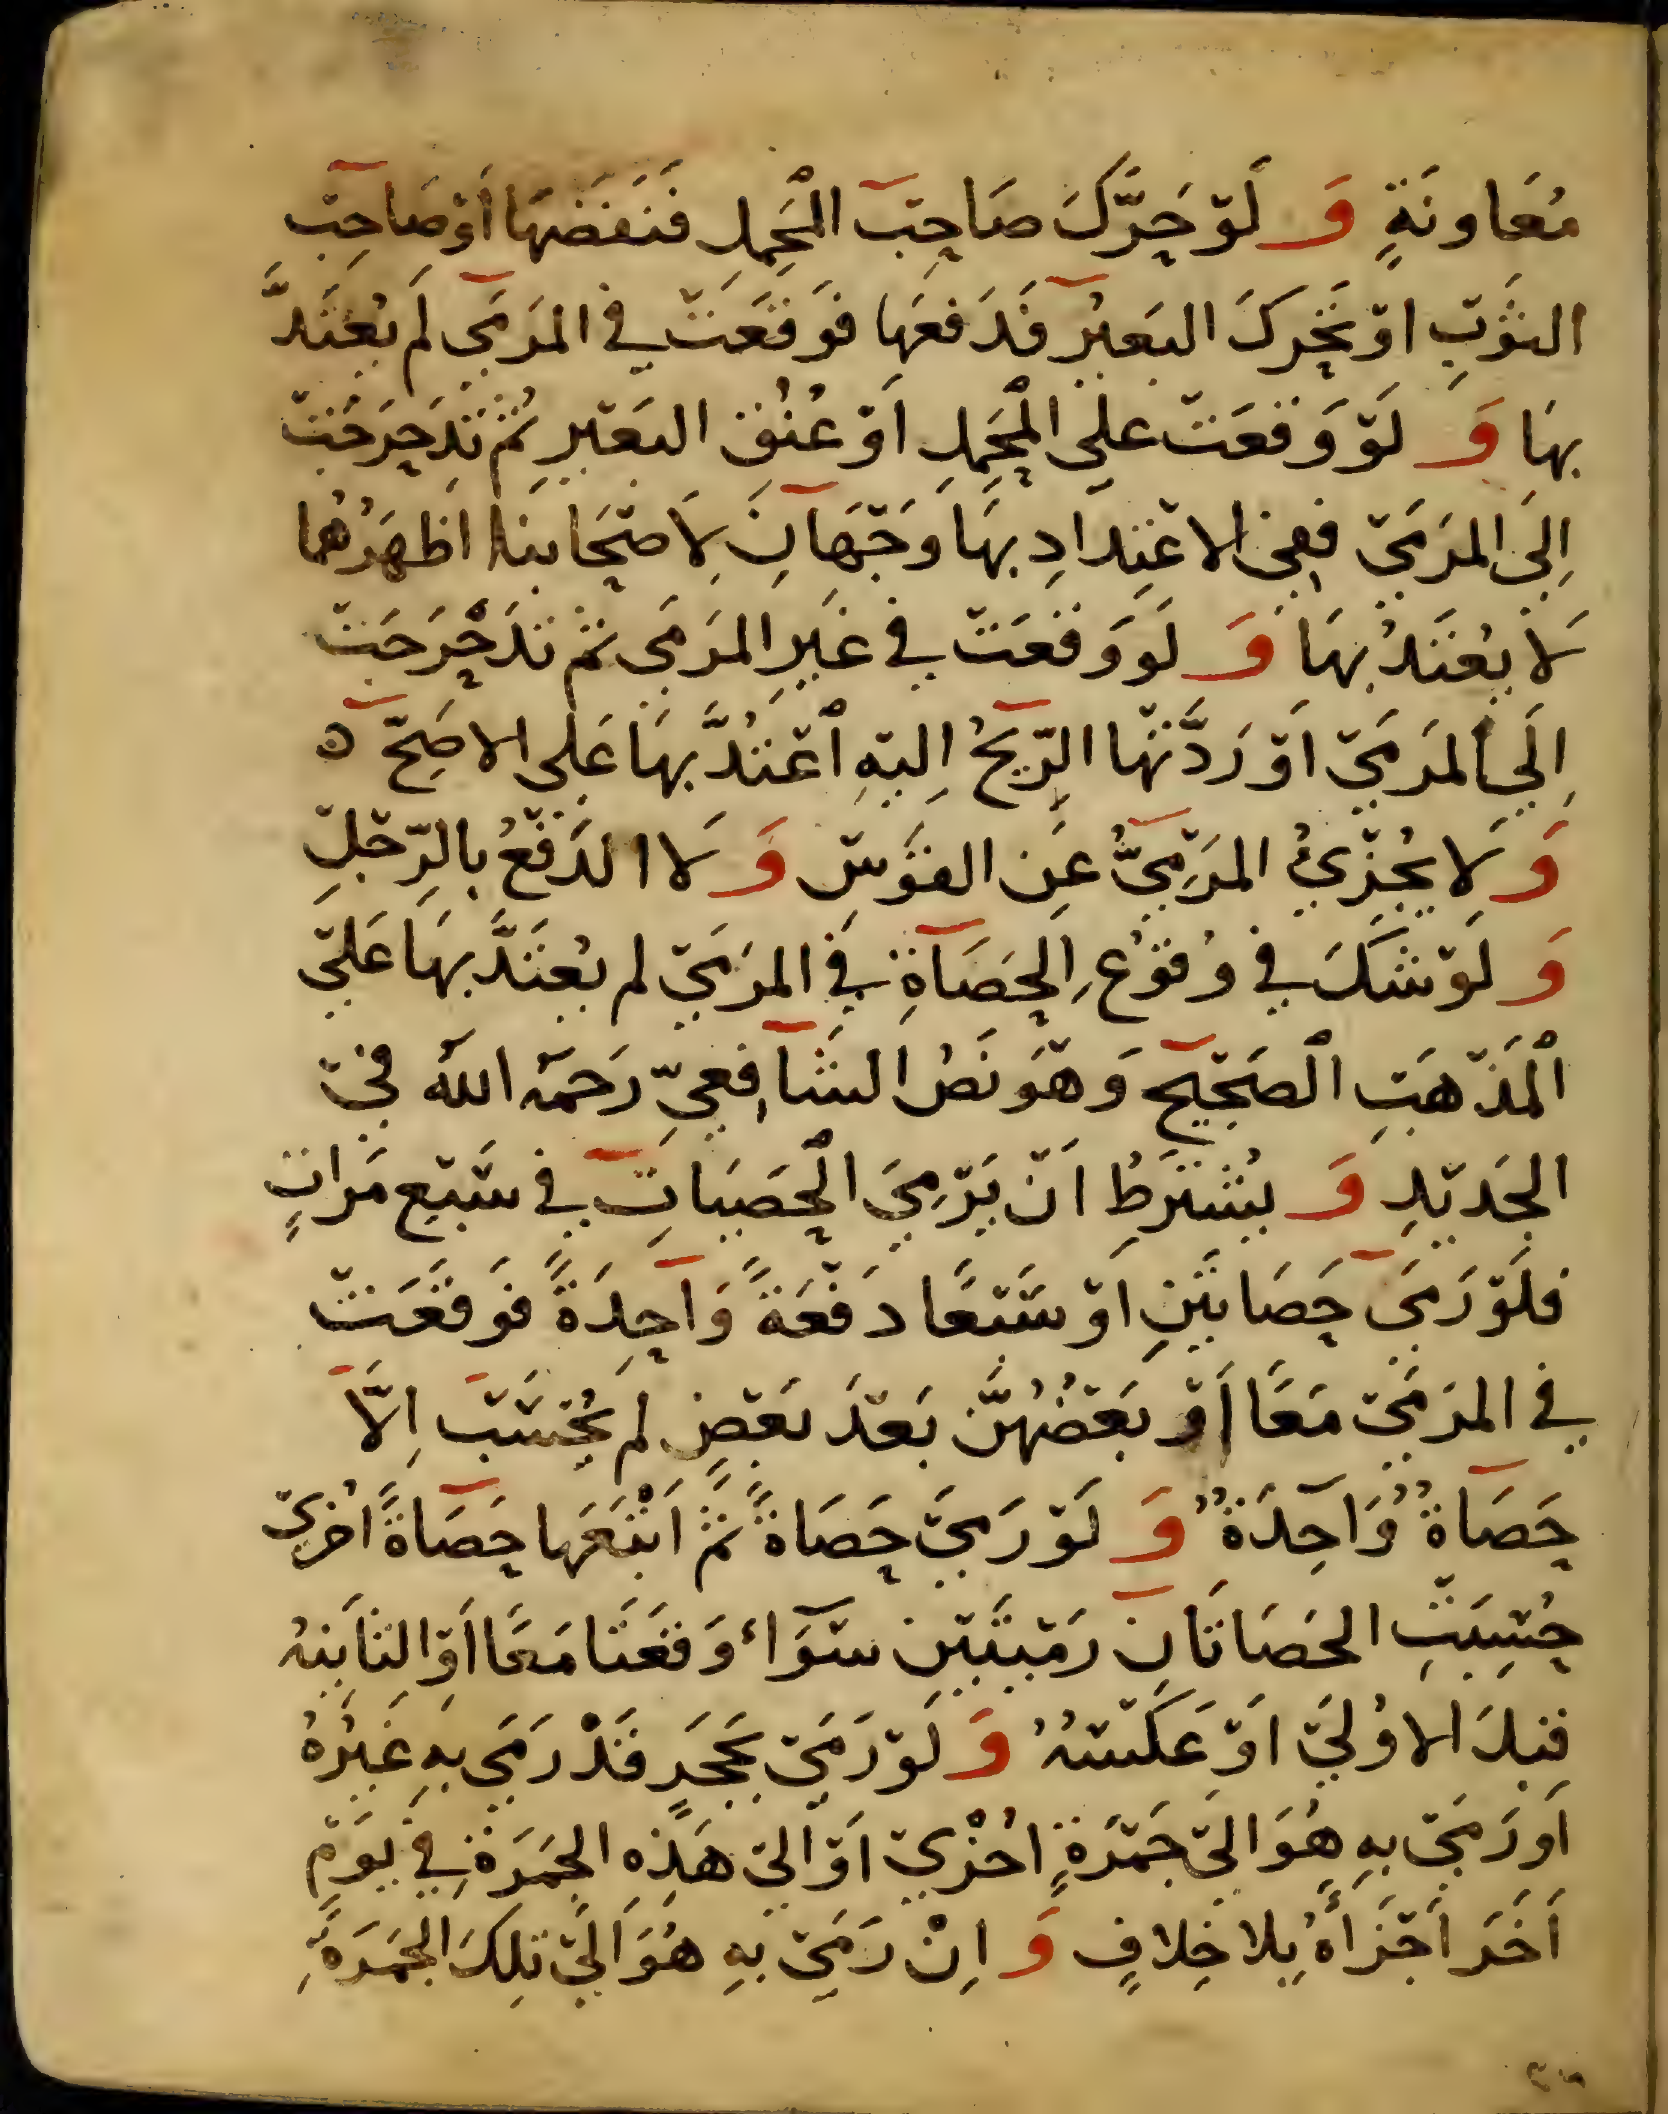 مُعَاونَةٍ وَلَوْ حَرَّكَ صَاحِبُ المَحْمِلِ فَنَفَضَهَا أَوْ صَاحِبُ
الثَوْبِ اوْ تَحَرك البَعيْرُ فَدَفعَهَا فوَقَعَتْ في المَرْمَى لَم يُعْتَدَّ
بهَا وَلَوْ وَقعَتْ على المَحْمِلِ اَوْ عُنُقِ البَعيْرِ ثُمّ تَدَحْرَجَتْ
اِلَى المَرْمَى فِفِي الاعْتِدَادِ بهَا وَجْهَانِ لِاَصْحَابنَا اظهَرُهُمَا
لاَ يُعْتَدُ بهَا وَلَو وَقعَتْ في غَيرِ المَرمَى ثمّ تدَحْرَجَتْ
اِلَي المَرمَيْ اَوْ رَدَّتْهَا الرِّيحُ اِليْهِ اُعْتُدَّ بهَا عَلى الاصَحّ ٥
وَلا يُجْزِئُ المَرْمِيُّ عَن القوْسِ وَلاا لدَفعُ بالرِّجْلِ
وَلوْ شكَ في وُقوْعِ الحَصَاةِ في المَرمَيْ لم يُعْتَدَّ بهَا عَلَيْ
الْمَذْهَبِ الصَحِيْحِ وَهْوَ نَصُ الشَافِعِيّ رَحمَه اللهُ فيْ
الجَديْدِ وَيُشترَطُ اَنْ يَرْمِيَ الْحَصَيَاتِ في سَبْعِ مَراتٍ
فلَوْ رَمَى حَصَاتيَنِ اَوْ سَبْعًا دَفْعَةً وَاحِدَةً فوَقَعَتْ
في المَرمَيْ مَعًا اَوْ بَعْضُهُنَّ بَعْدَ بَعْضٍ لم يُحْسَبْ اِلَّا
حَصَاةٌ وَاحِدَةٌ وَلَوْ رَمَيْ حَصَاةً ثمّ اَتْبَعَهَا حَصَاةً اُخْريْ
حُسِبَتِ الحَصَاتَانِ رَمْيَتَيْنِ سَوَاء وَقَعَتَا مَعًا اَوْ الثانيَه
قبْلَ الاوُليَ اَوْ عَكْسَهُ وَلَوْ رَمَيْ بحَجَرٍ قَدْ رَمَى بهِ غيْرُهُ
اَو رَمَيْ بهِ هُوَ اليْ جَمْرَةٍ اخْريْ اَوْ اليْ هَذِه الجَمَرَةِ فيْ يَوْمٍ
آخَرَ اَجْزَأهُ بِلا خِلافٍ وَاِنْ رَمَيْ بهِ هُوَ اليْ تلكَ الجَمَرَةِ